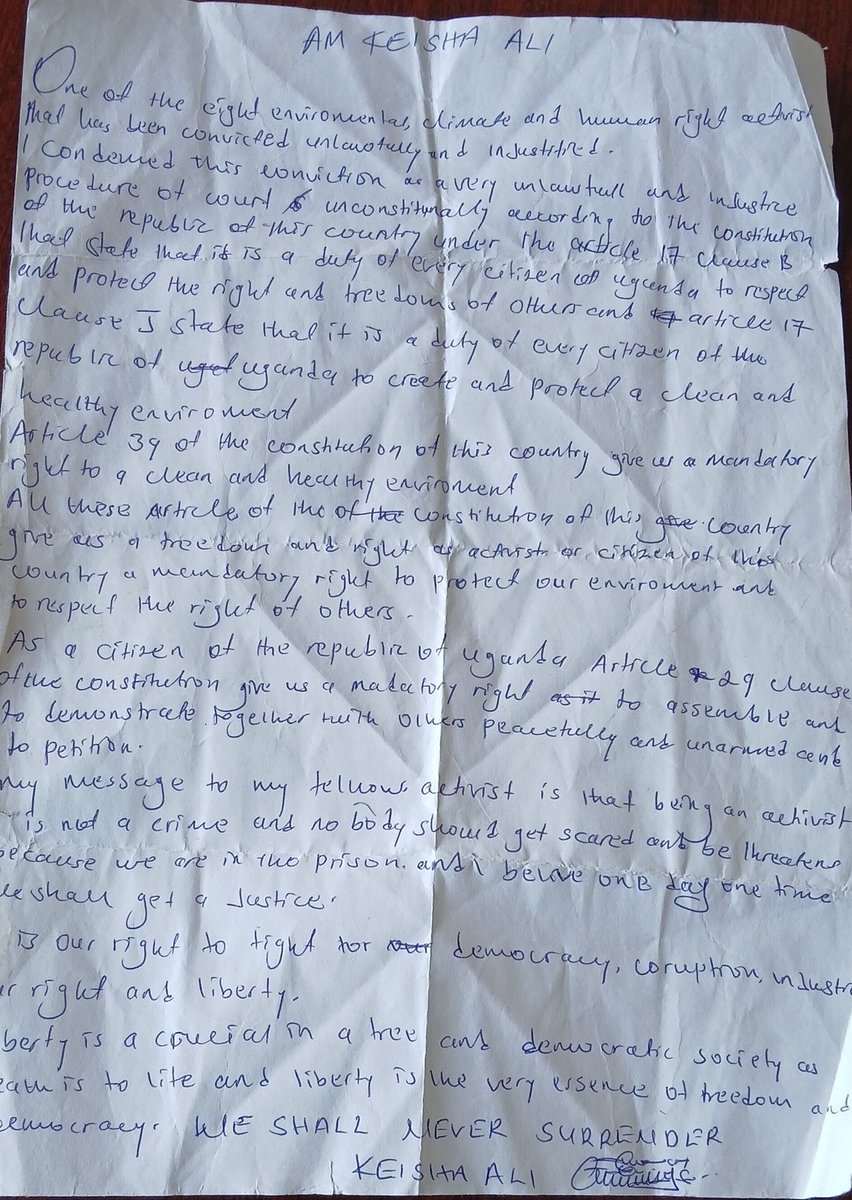 AM KEISHA ALI
One of the eight enviromental, climate and human right activist
that has been convicted unlawfully and injustified.
I condemed this conviction as a very unlawfull and injustice
procedure of court unconstitunally according to the constitution
of the republic of this country under the article 17 clause B
that state that it is a duty of every citizen of uganda to respect
and protect the right and freedoms of others and article 17
clause J state that it is a duty of every citizen of the
republic of uganda to create and protect a clean and
healthy enviroment
Article 39 of the constitution of this country give us a mandatory
right to a clean and healthy enviroment
All these Article of the of constitution of this country
give us a freedom and right as activist or citizen of this
country a mandatory right to protect our enviroment and
to respect the right of others.
As a citizen of the republic of uganda Article 29 clause
of the constitution give us a madatory right to assemble and
to demonstrate together with others peacefully and unarmed and
to petition.
my message to my felluows activist is that being an activist
is not a crime and no body should get scared and be threatens
because we are in the prison. and i belive one day one time
we shall get a justice.
is our right to fight for democracy, coruption, injustic
r right and liberty.
berty is a crucial in a free and democratic society as
eath is to life and liberty is the very essence of freedom and
democracy. WE SHALL NEVER SURRENDER
KEISHA ALI